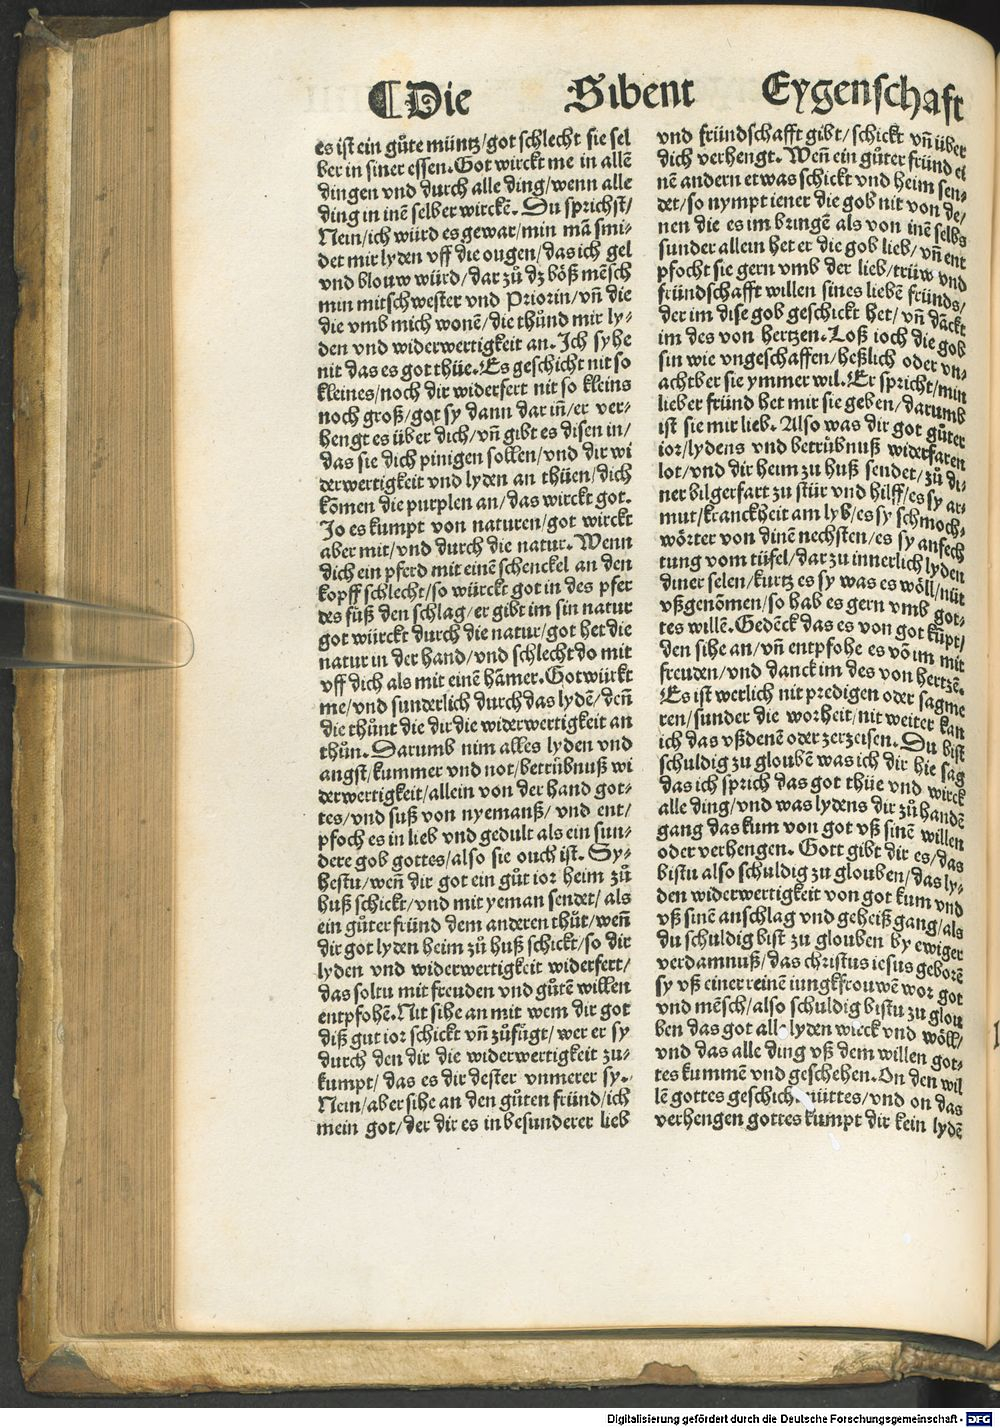 ¶Die Sibent Eygenschaft
es ist ein gůte müntz/got schlecht sie sel
ber in siner essen. Got wirckt me in allē
dingen vnd durch alle ding/wenn alle
ding in inē selber wirckē. Du sprichst/
Nein/ich würd es gewar/min mā smi⸗
det mir lyden vff die ougen/das ich gel
vnd blouw würd/dar zů dz böß mēsch
min mitschwester vnd Priorin/vn̄ die
die vmb mich wonē/die thůnd mir ly⸗
den vnd widerwertigkeit an. Ich syhe
nit das es got thüe. Es geschicht nit so
kleines/noch dir widerfert nit so kleins
noch groß/got sy dann dar in̄/er ver⸗
hengt es über dich/vn̄ gibt es disen in/
das sie dich pinigen sollen/vnd dir wi
derwertigkeit vnd lyden an thüen/dich
kōmen die purplen an/das wirckt got.
Jo es kumpt von naturen/got wirckt
aber mit/vnd durch die natur. Wenn
dich ein pferd mit einē schenckel an den
kopff schlecht/so würckt got in des pfer
des füß den schlag/er gibt im sin natur
got würckt durch die natur/got het die
natur in der hand/vnd schlecht do mit
vff dich als mit einē hāmer. Got würkt
me/vnd sunderlich durch das lydē/den̄
die thůnt die dir die widerwertigkeit an
thůn. Darumb nim alles lyden vnd
angst/kummer vnd not/betrübnuß wi
derwertigkeit/allein von der hand got⸗
tes/vnd suß von nyemanß/ vnd ent/
pfoch es in lieb vnd gedult als ein sun⸗
dere gob gottes/also sie ouch ist. Sy⸗
hestu/wen̄ dir got ein gůt ior heim zů
huß schickt/vnd mit yeman sendet/ als
ein gůter fründ dem anderen thůt/wen̄
dir got lyden heim zů huß schickt/so dir
lyden vnd widerwertigkeit widerfert/
das soltu mit freuden vnd gůtē willen
entpfohē. Nit sihe an mit wem dir got
diß gut ior schickt vn̄ zůfügt/wer er sy
durch den dir die widerwertigkeit zu⸗
kumpt/ das es dir dester vnmerer sy.
Nein/aber sihe an den gůten fründ/ich
mein got/der dir es in besunderer lieb
vnd fründschafft gibt/schickt vn̄ über
dich verhengt. Wen̄ ein gůter fründ ei
nē andern etwas schickt vnd heim sen⸗
det/so nympt iener die gob nit von de⸗
nen die es im bringē als von inē selbs
sunder allein het er die gob lieb/vn̄ ent
pfocht sie gern vmb der lieb/trüw vnd
fründschafft willen sines liebē fründs/
der im dise gob geschickt het/vn̄ dāckt
im des von hertzen. Loß ioch die gob
sin wie vngeschaffen/heßlich oder vn⸗
achtber sie ymmer wil. Er spricht/min
lieber fründ het mir sie geben/darumb
ist sie mir lieb. Also was dir got gůter
ior/lydens vnd betrübnuß widerfaren
lot/vnd dir heim zu huß sendet/zů di⸗
ner bilgerfart zu stür vnd hilff/es sy ar⸗
mut/kranckheit am lyb/es sy schmoch⸗
wörter von dinē nechsten/es sy anfech
tung vom tüfel/dar zu innerlich lyden
diner selen/kurtz es sy was es wöll/nüt
vßgenōmen/so hab es gern vmb got⸗
tes willē. Gedēck das es von got kūpt/
den sihe an/vn̄ entpfohe es vō im mit
freuden/vnd danck im des von hertzē.
Es ist werlich nit predigen oder sagme
ren/sunder die worheit/nit weiter kan
ich das vßdenē oder zerzeisen. Du bist
schuldig zu gloubē was ich dir hie sag
das ich sprich das got thüe vnd wirck
alle ding/vnd was lydens dir zů handē
gang das kum von got vß sinē willen
oder verhengen. Gott gibt dir es/das
bistu also schuldig zu glouben/das ly⸗
den widerwertigkeit von got kum vnd
vß sinē anschlag vnd geheiß gang/als
du schuldig bist zu glouben by ewiger
verdamnuß/das christus iesus geborē
sy vß einer reinē iungkfrouwē wor got
vnd mēsch/also schuldig bistu zu glou
ben das got lyden wirck vnd wöll/
vnd das alle ding vß dem willen got⸗
tes kummē vnd geschehen. On den wil
lē gottes nüttes/vnd on das
verhengen gottes kumpt dir kein lydē
Digitalisierung gefördert durch die Deutsche Forschungsgemeinschaft - DFG